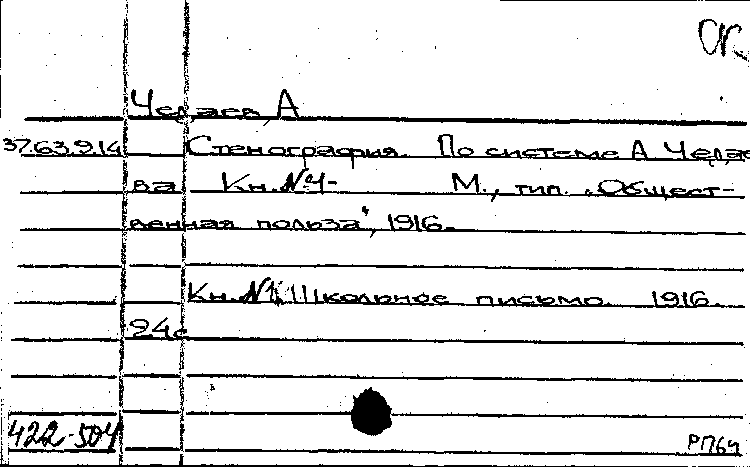 СК
Челаев, А
37.63.9.14 Стенография. По системе А Челае
ва Кн. №1- М., тип. „Общест-
венная польза", 1916.
Кн. №1 Школьное письмо. 1916.
24с
422-504
РП64